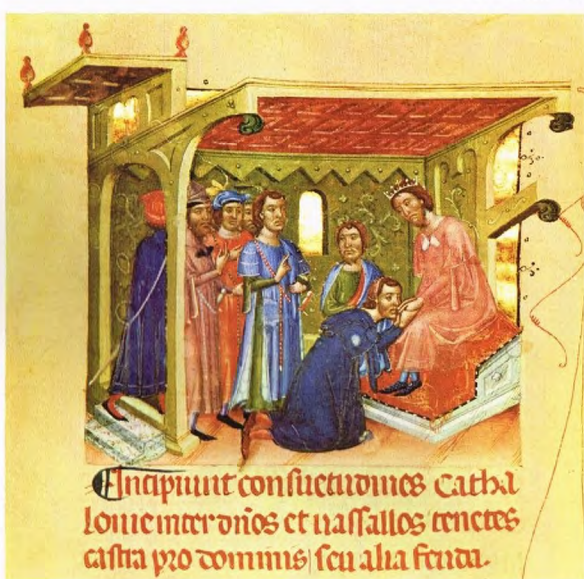 Incipiunt consuetudines Catha
lonie inter dños et uassallos tenetes
castra pro dominis seu alia feuda.